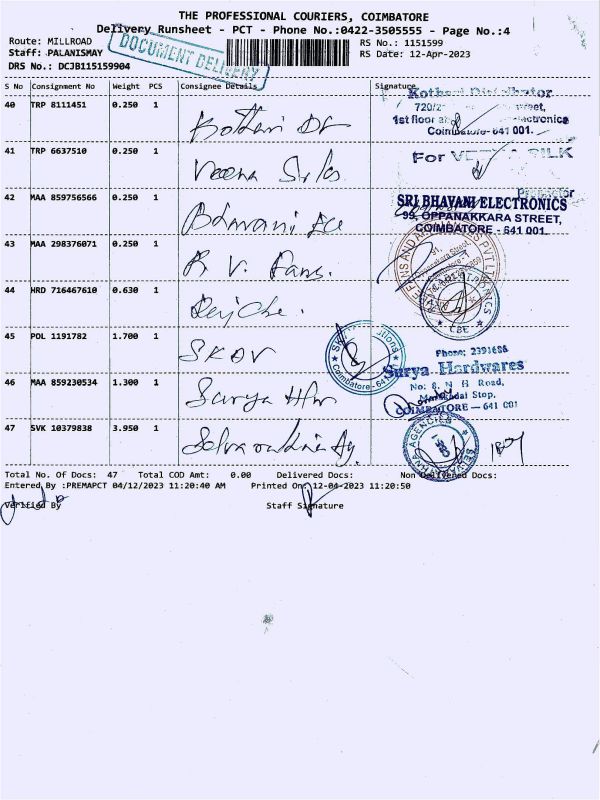 THE PROFESSIONAL COURIERS, COIMBATORE
Delivery Runsheet - PCT - Phone No.:0422-3505555 - Page No.:4
Route: MILLROAD
RS No.: 1151599
Staff: PALANISMAY
RS Date: 12-Apr-2023
DRS No.: DCJB115159904
DOCUMENT DELIVERY
S No Consignment No Weight PCS Consignee Details Signature
40 TRP 8111451 0.250 1 Kothari
Kothari Distributor
720/2 Street,
1st floor Electronics
Coimbatore-641 001.
41 TRP 6637510 0.250 1 Veena Silks
For SILK
Proprietor
42 MAA 859756566 0.250 1 Bhavani Ele
SRI BHAVANI ELECTRONICS
99, OPPANAKKARA STREET,
COIMBATORE - 641 001.
43 MAA 298376071 0.250 1 R. V. Fans.
44 HRD 716467610 0.630 1
CBE
45 POL 1191782 1.700 1 SKOV
Coimbatore-641
46 MAA 859230534 1.300 1 Surya Hw
Phone: 2391688
Surya Hardwares
No: 8, N H Road,
Stop.
COIMBATORE - 641 001
47 SVK 10379838 3.950 1 Agy.
AGENCIES
Total No. Of Docs: 47 Total COD Amt: 0.00 Delivered Docs: Non Delivered Docs:
Entered By :PREMAPCT 04/12/2023 11:20:40 AM Printed On: 12-04-2023 11:20:50
Verified By Staff Signature